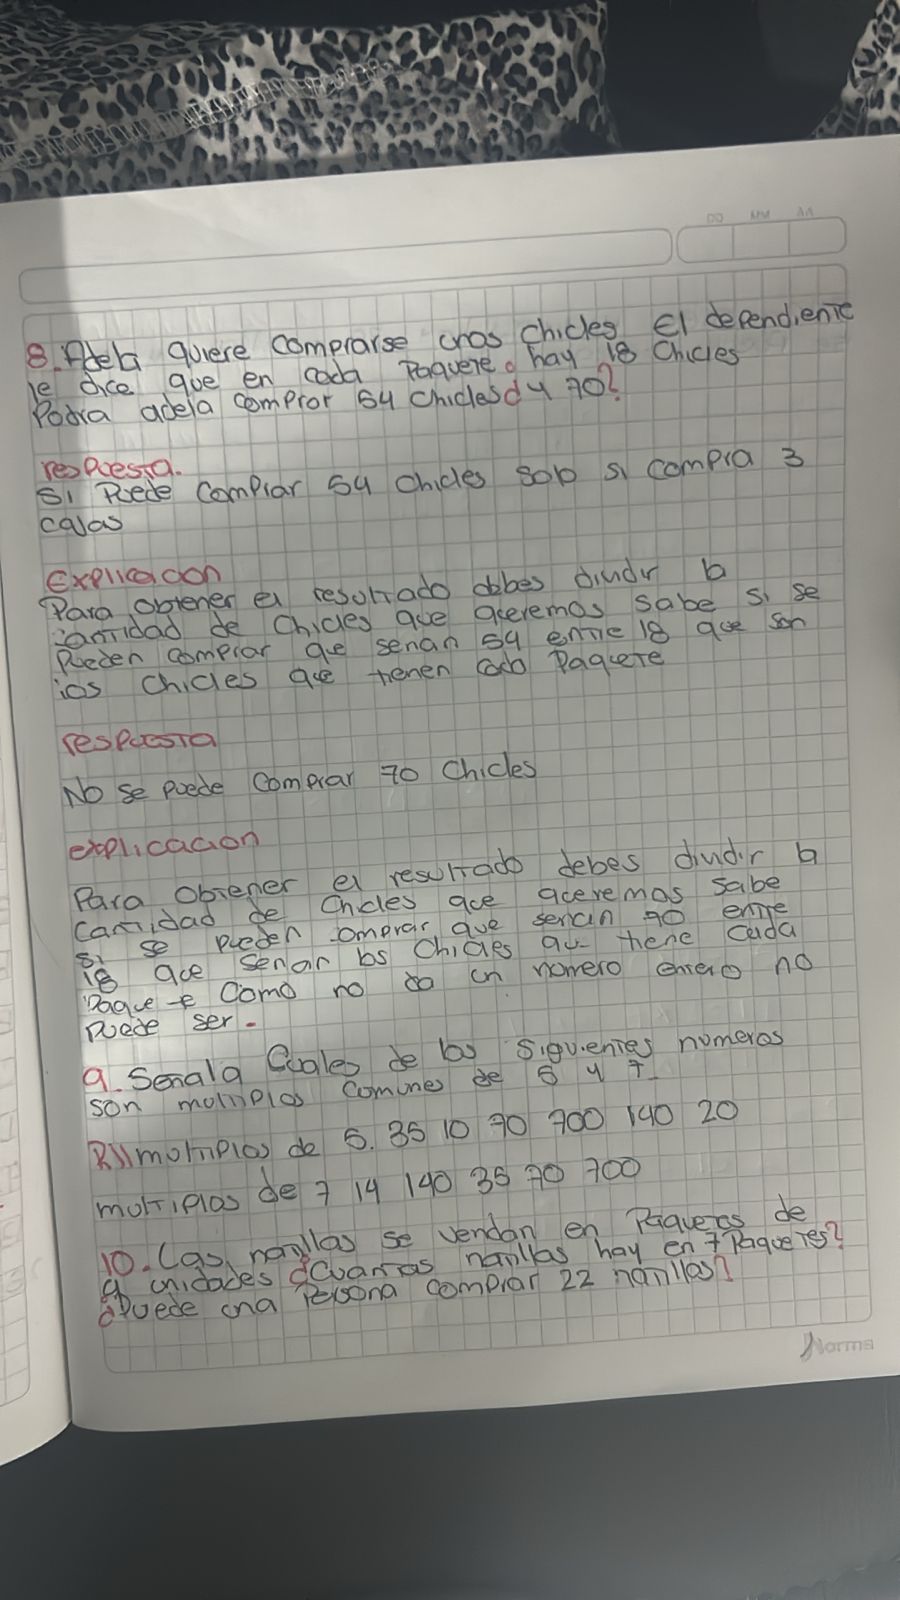 DD MM AA
8. Adela quiere comprarse unos chicles El dependiente
le dice que en cada Paquete hay 18 Chicles
Podra adela comprar 54 Chicles ¿ y 70?
respuesta.
Si Puede Comprar 54 chicles solo si compra 3
cajas
Explicacion
Para obtener el resultado debes dividir la
cantidad de Chicles que queremos sabe si se
Pueden comprar que serian 54 entre 18 que son
los chicles que tienen cada Paquete
respuesta
No se puede Comprar 70 Chicles
explicacion
Para Obtener el resultado debes dividir la
Cantidad de Chicles que queremos sabe
si se pueden comprar que serian 70 entre
18 que serian los Chicles que tiene Cada
Paquete Como no da un numero entero no
Puede ser.
9. Senala Cuales de los Siguientes numeros
son multiplos Comunes de 5 y 7
R// multiplos de 5. 35 10 70 700 140 20
multiplos de 7 14 140 35 70 700
10. Las natillas se vendan en Paquetes de
4 unidades ¿Cuantas natillas hay en 7 Paquetes?
¿Puede una Persona comprar 22 natillas?
Norma